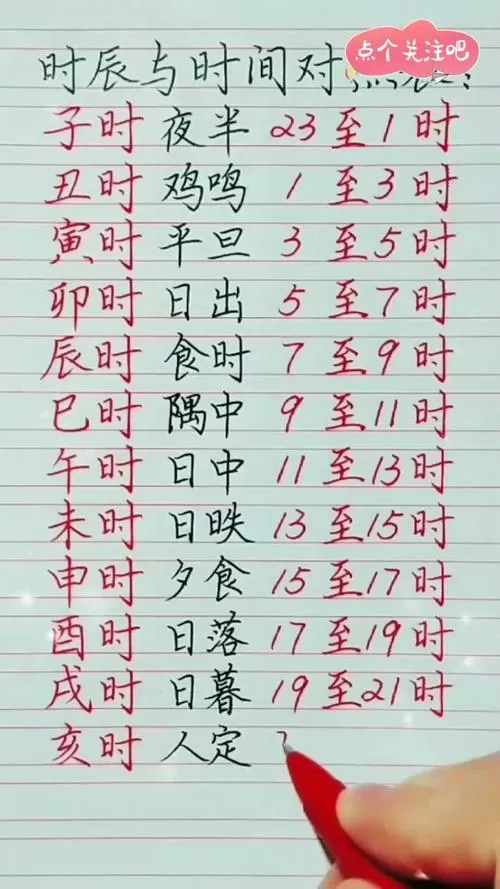 点个关注吧
时辰与时间对
子时 夜半 23至1时
丑时 鸡鸣 1至3时
寅时 平旦 3至5时
卯时 日出 5至7时
辰时 食时 7至9时
巳时 隅中 9至11时
午时 日中 11至13时
未时 日昳 13至15时
申时 夕食 15至17时
酉时 日落 17至19时
戌时 日暮 19至21时
亥时 人定